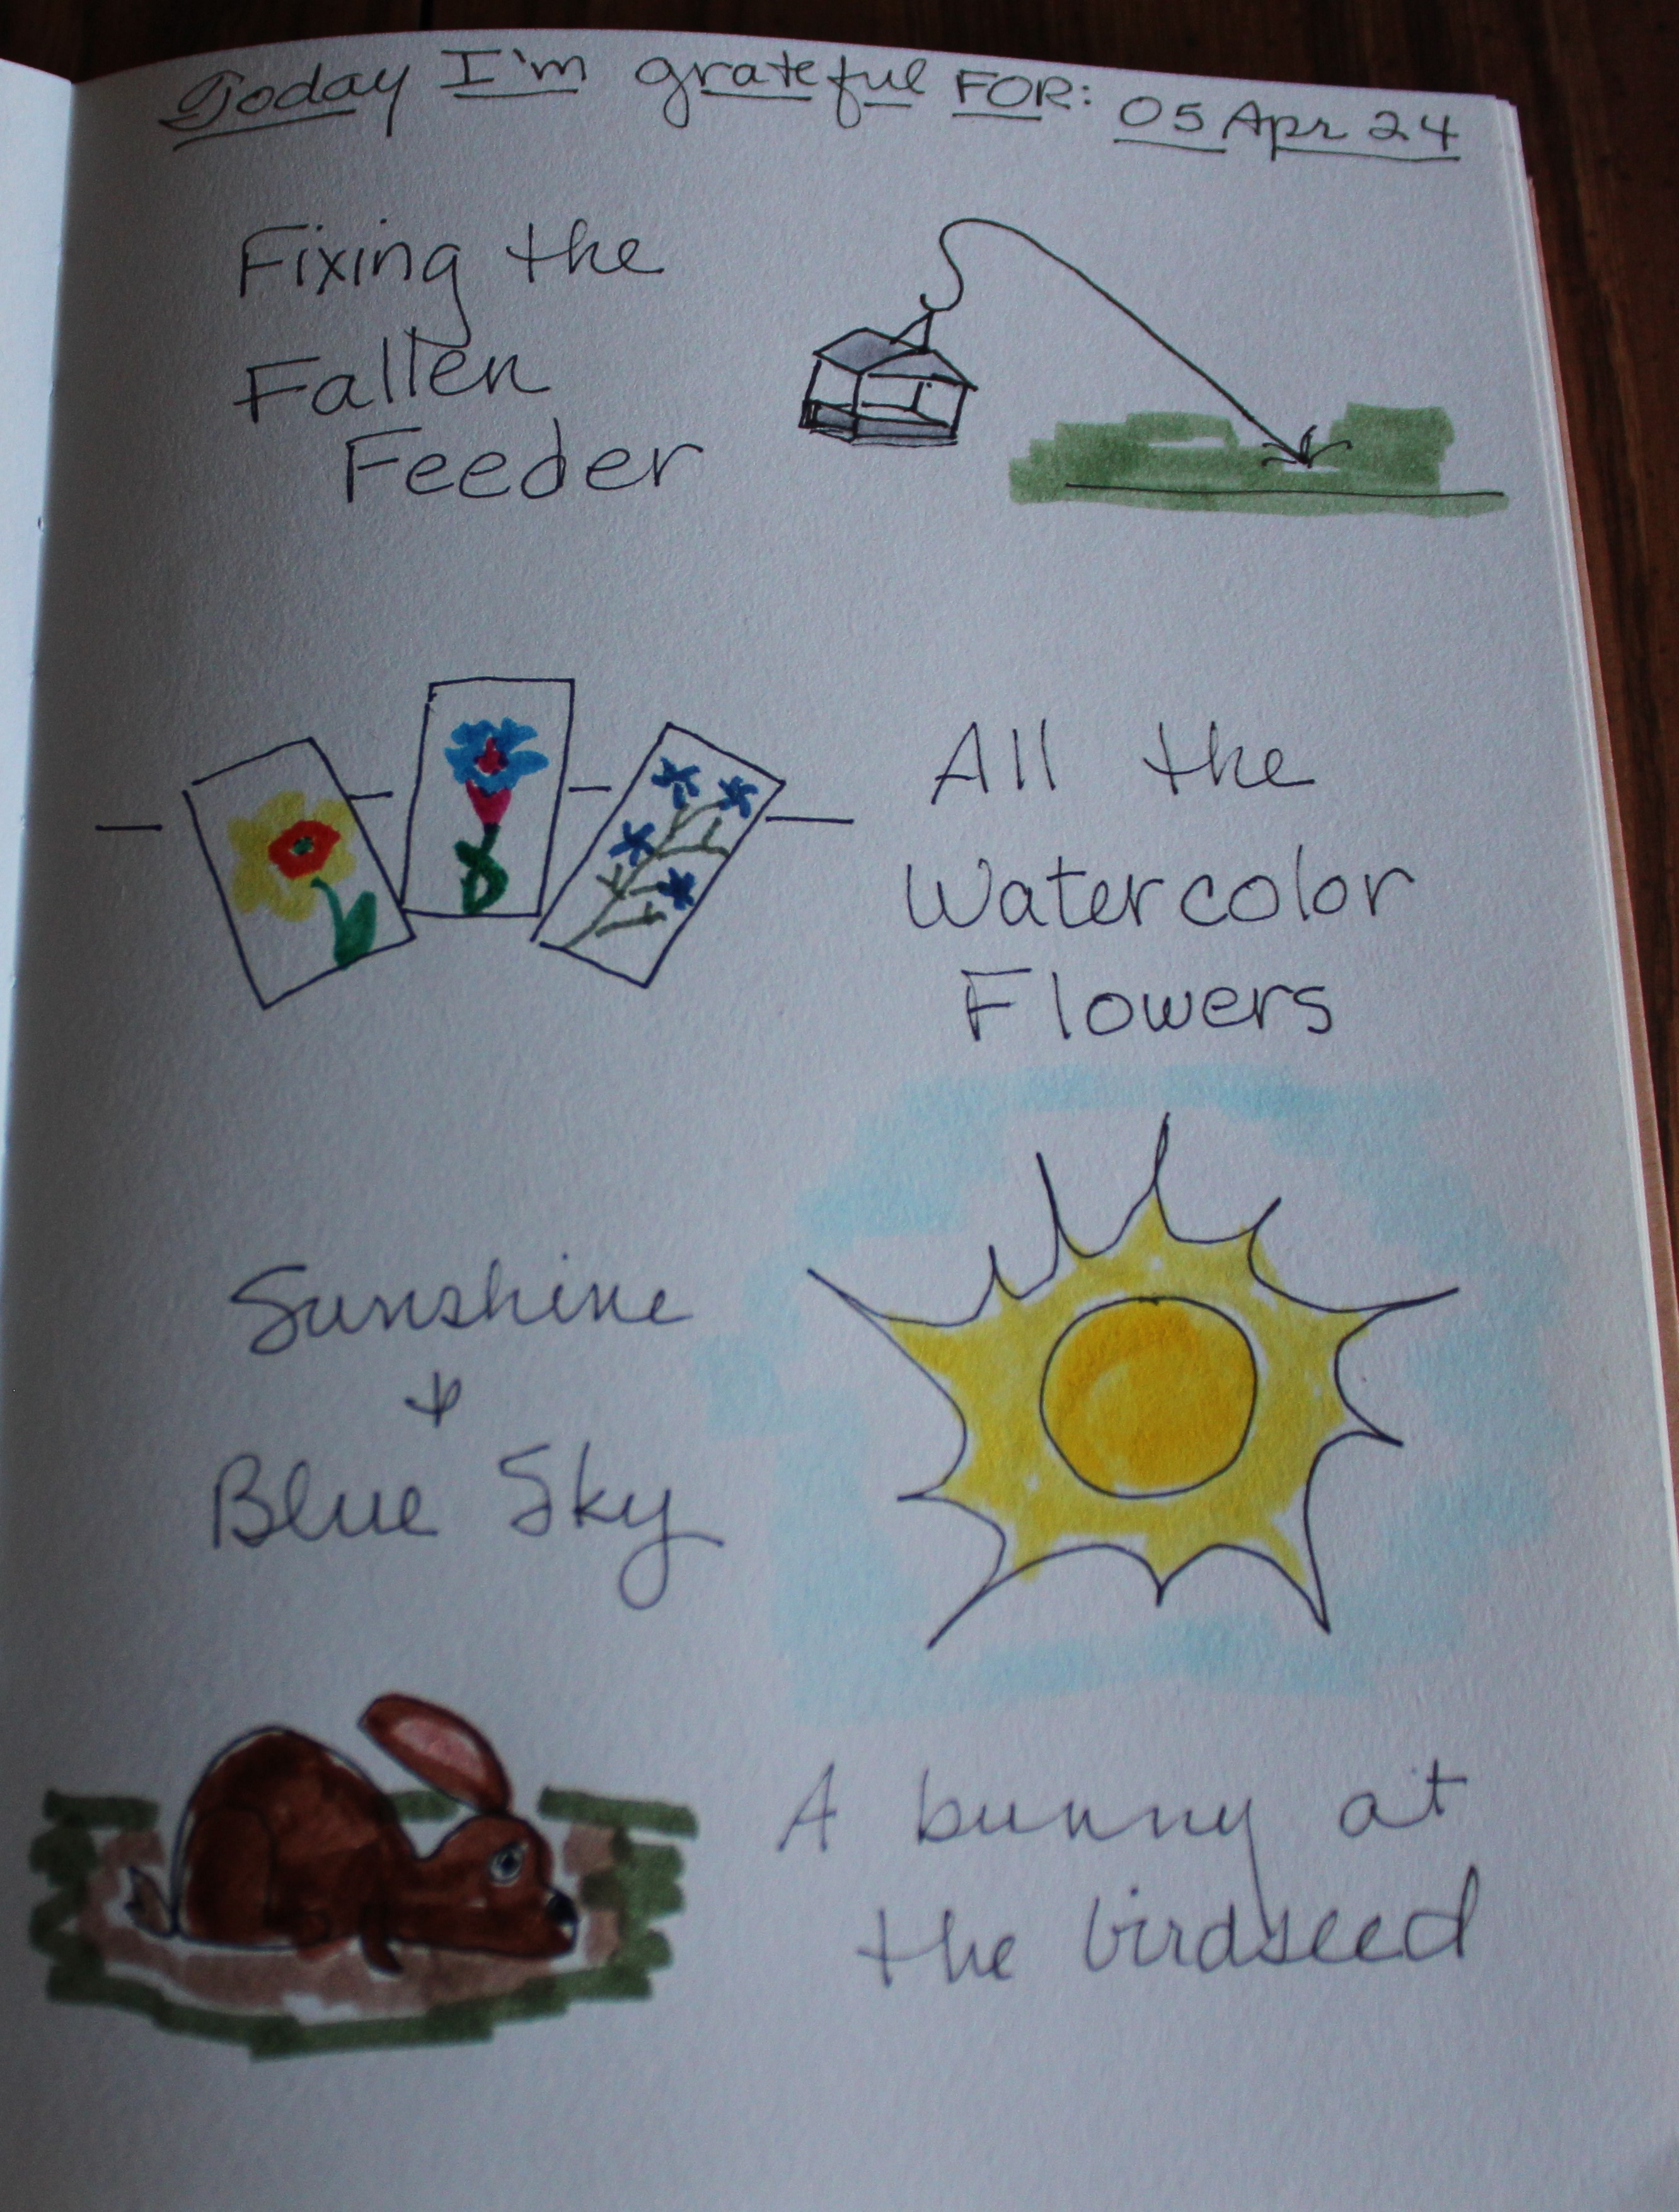 Today I'm grateful FOR: 05 Apr 24
Fixing the
Fallen
Feeder
All the
Watercolor
Flowers
Sunshine
+
Blue Sky
A bunny at
the birdseed